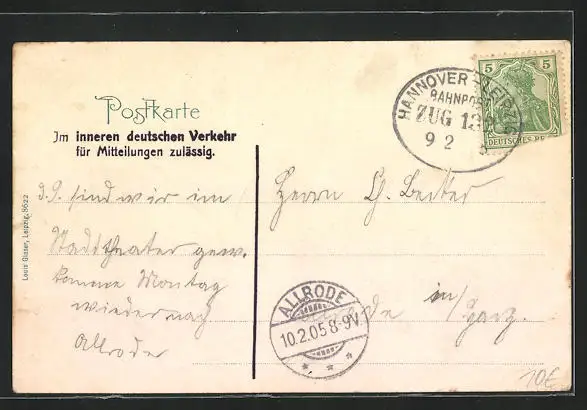 Postkarte
Im inneren deutschen Verkehr
für Mitteilungen zulässig.
HANNOVER - LEIPZIG
BAHNPOST
ZUG 13
9 2
5
5
DEUTSCHES RE
sind wir im
Stadttheater gew.
komme Montag
wieder nach
Allrode
Herrn
in/Harz.
ALLRODE
10.2.05 8-9V.
Louis Glaser, Leipzig. 8622
10€